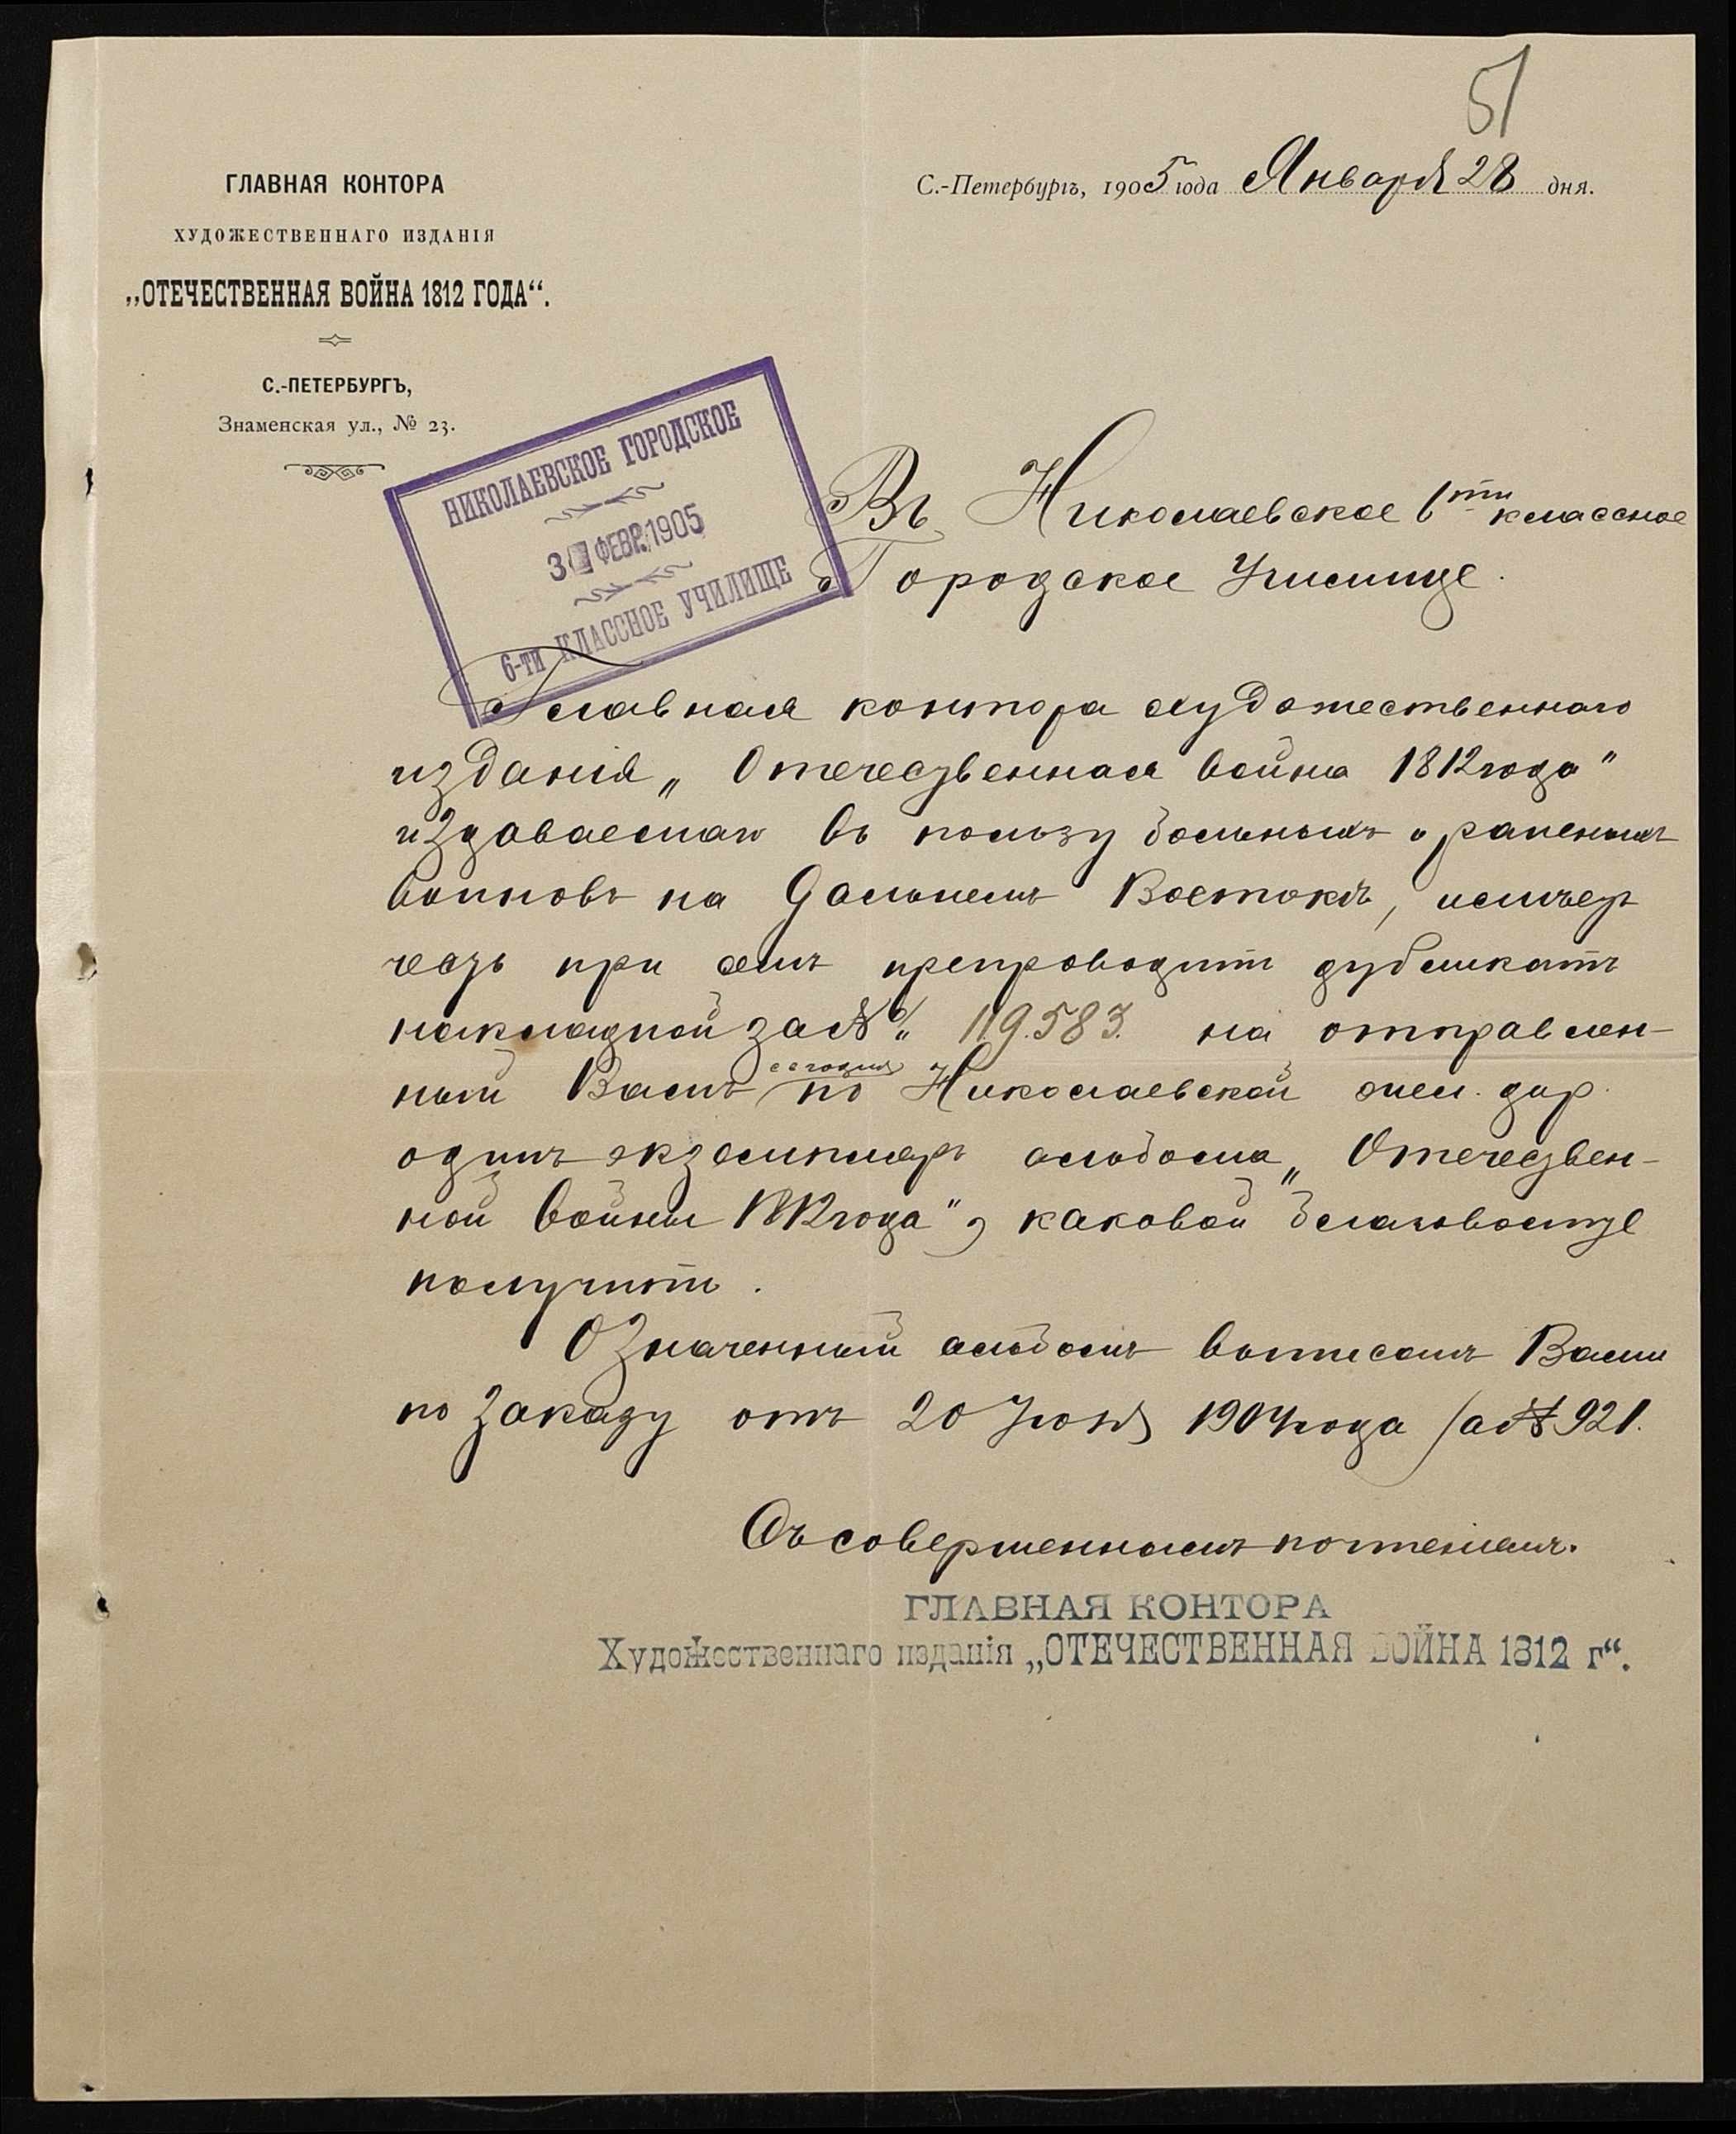 51
С.-Петербургъ, 1905 года Января 28 дня.
ГЛАВНАЯ КОНТОРА
ХУДОЖЕСТВЕННАГО ИЗДАНІЯ
„ОТЕЧЕСТВЕННАЯ ВОЙНА 1812 ГОДА“.
С.-ПЕТЕРБУРГЪ,
Знаменская ул., № 23.
НИКОЛАЕВСКОЕ ГОРОДСКОЕ
3 ФЕВР. 1905
6-ТИ КЛАССНОЕ УЧИЛИЩЕ
Въ Николаевское 6ти классное
Городское Училище.
Главная контора художественнаго
изданія „Отечественная война 1812 года"
издаваемаго въ пользу больныхъ и раненыхъ
воиновъ на Дальнемъ Востокѣ, имѣетъ
честь при семъ препроводить дубликатъ
накладной за № 119.583. на отправлен-
ный Вамъ сегодня по Николаевской жел. дор.
одинъ экземпляръ альбома „Отечествен-
ной Войны 1812 года", каковой благоволите
получить.
Означенный альбомъ выписанъ Вами
по заказу отъ 20 Іюня 1904 года за № 921.
Съ совершеннымъ почтеніемъ.
ГЛАВНАЯ КОНТОРА
Художественнаго изданія „ОТЕЧЕСТВЕННАЯ ВОЙНА 1812 г“.